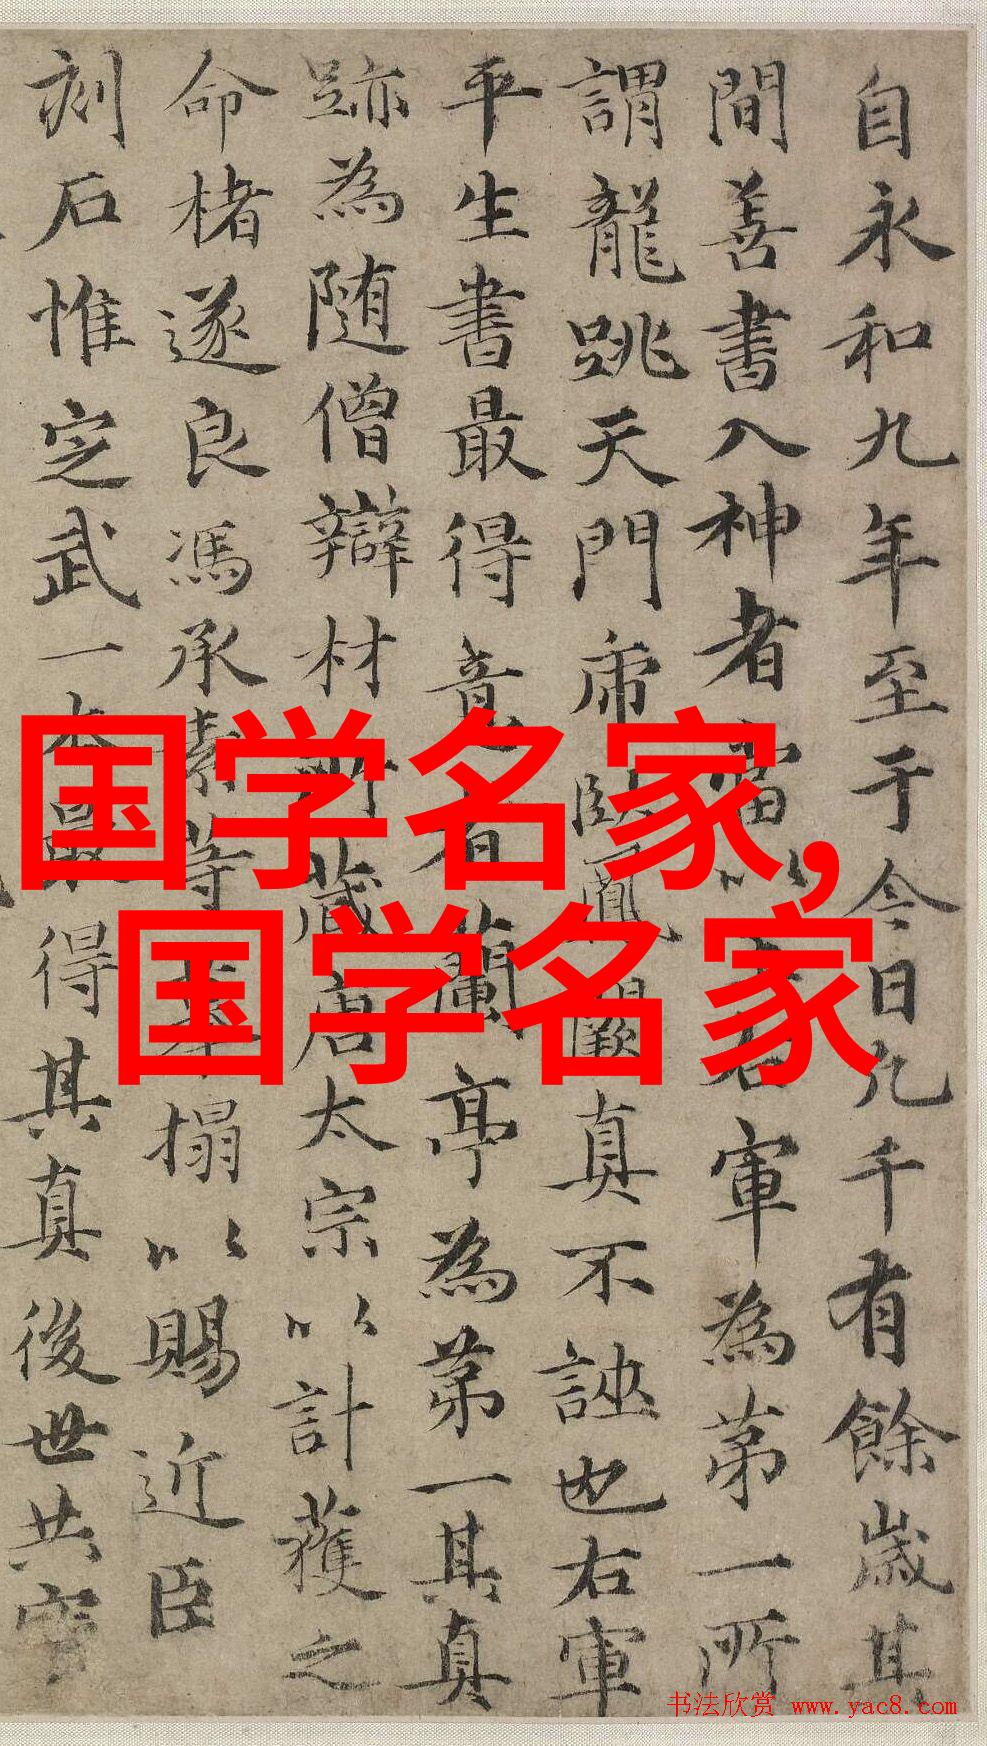 自永和九年至于今日凡千有餘歲其
間善書入神者當以右軍為第一所
謂龍跳天門席臥鳳閣真不誣也右軍
平生書最得意者蘭亭為第一其真
跡為随僧辯材所藏唐太宗以計獲之
命楮遂良馮承素等摹搨以賜近臣
刻石惟定武一本最得其真後世共寳
国学名家,
国学名家
书法欣赏 www.yac8.com